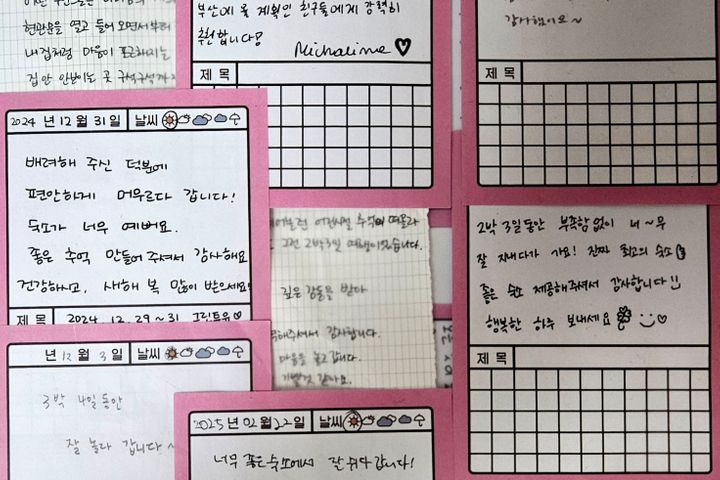 현관문을 열고 들어오면서부터
내 집처럼 마음이
집안 안보이는 곳 구석구석까지
부산에 올 계획인 친구들에게 강력히
추천합니다!
Michalina ♡
제 목
감사했어요~
제 목
2024 년 12 월 31 일 날씨
배려해 주신 덕분에
편안하게 머무르다 갑니다!
숙소가 너무 예뻐요.
좋은 추억 만들어 주셔서 감사해요
건강하시고, 새해 복 많이 받으세요!
제 목 2024. 12. 29~31
추억이 떠올라
그런 2박3일 여행이었습니다.
깊은 감동을 받아
해주셔서 감사합니다.
마음을 놓고 갑니다.
2박 3일동안 부족함 없이 너~무
잘 지내다가 가요! 진짜 최고의 숙소
좋은 숙소 제공해주셔서 감사합니다
행복한 하루 보내세요
제 목
년 12 월 3 일 날씨
3박 4일동안
잘 놀다 갑니다~
2025 년 02 월 22 일 날씨
너무 좋은 숙소에서 잘 쉬다 갑니다!